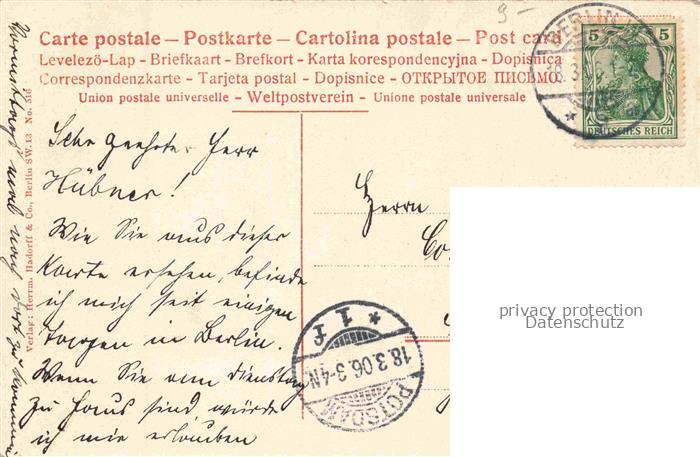 9 -
Carte postale — Postkarte — Cartolina postale — Post card
Levelező-Lap - Briefkaart - Brefkort - Karta korespondencyjna - Dopisnica
Correspondenzkarte - Tarjeta postal - Dopisnice - ОТКРЫТОЕ ПИСЬМО
Union postale universelle - Weltpostverein - Unione postale universale
BERLIN
5 5
DEUTSCHES REICH
Sehr geehrter Herr
Hübner!
Wie Sie aus dieser
Karte ersehen, befinde
ich mich seit einigen
Tagen in Berlin.
Wenn Sie am Dienstag
zu Haus sind, würde
ich mir erlauben
Vormittags mal nach dort zu kommen
Verlag: Herrm. Hadorff & Co., Berlin SW. 13 No. 516
Herrn
* 1 f
18.3.06.3-4N.
POTSDAM
privacy protection
Datenschutz